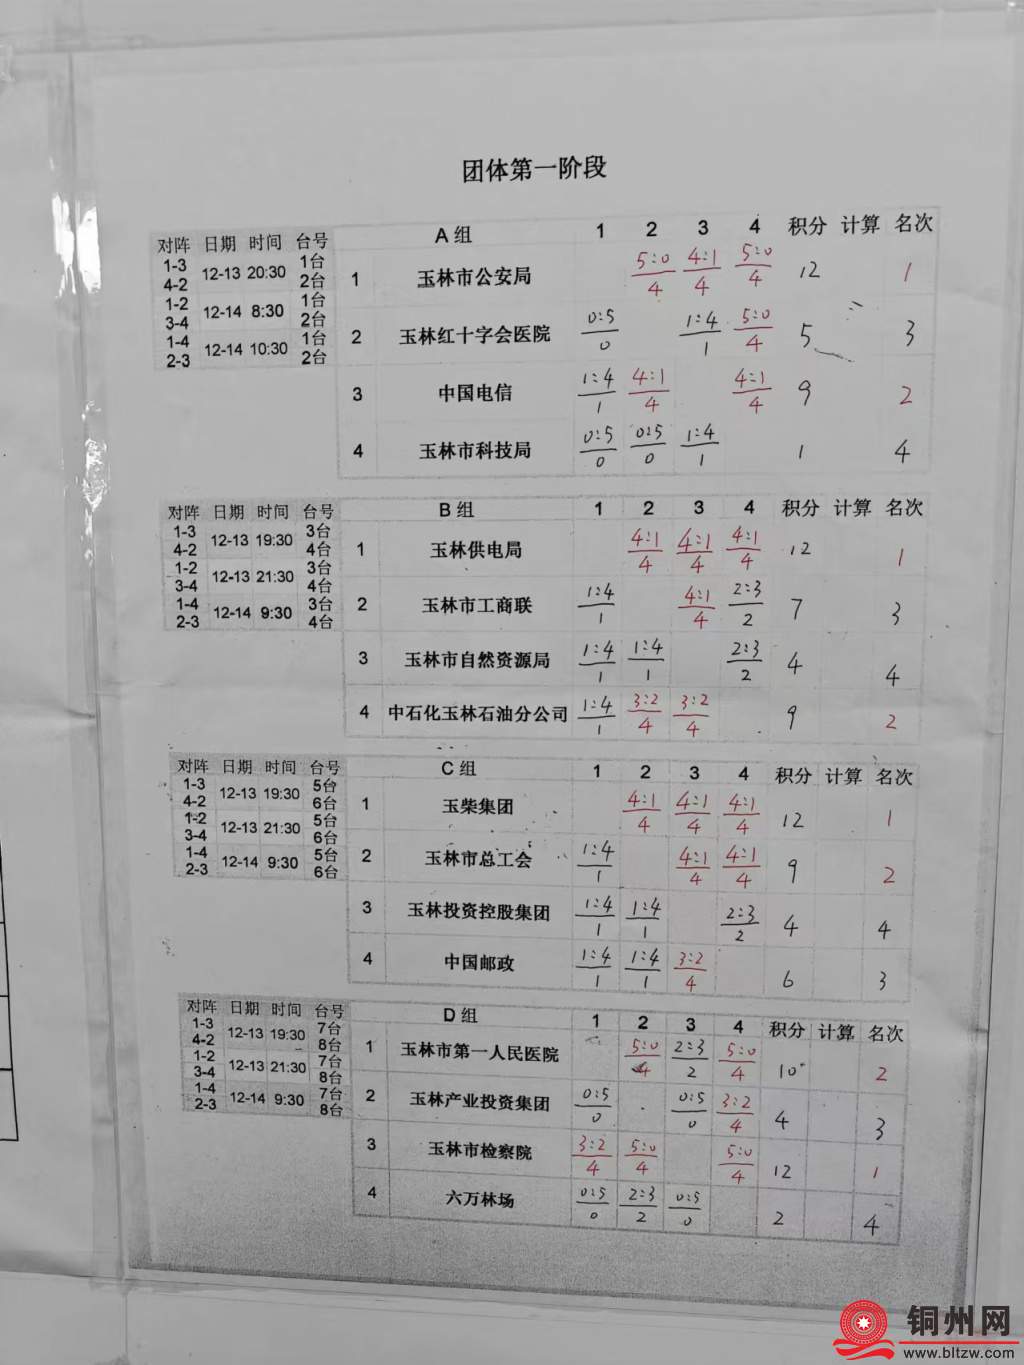 团体第一阶段
对阵 日期 时间 台号 A 组 1 2 3 4 积分 计算 名次
1-3 12-13 20:30 1台
4-2 2台
1-2 12-14 8:30 1台
3-4 2台
1-4 12-14 10:30 1台
2-3 2台
1 玉林市公安局 5:0/4 4:1/4 5:0/4 12 1
2 玉林红十字会医院 0:5/0 1:4/1 5:0/4 5 3
3 中国电信 1:4/1 4:1/4 4:1/4 9 2
4 玉林市科技局 0:5/0 0:5/0 1:4/1 1 4
对阵 日期 时间 台号 B 组 1 2 3 4 积分 计算 名次
1-3 12-13 19:30 3台
4-2 4台
1-2 12-13 21:30 3台
3-4 4台
1-4 12-14 9:30 3台
2-3 4台
1 玉林供电局 4:1/4 4:1/4 4:1/4 12 1
2 玉林市工商联 1:4/1 4:1/4 2:3/2 7 3
3 玉林市自然资源局 1:4/1 1:4/1 2:3/2 4 4
4 中石化玉林石油分公司 1:4/1 3:2/4 3:2/4 9 2
对阵 日期 时间 台号 C 组 1 2 3 4 积分 计算 名次
1-3 12-13 19:30 5台
4-2 6台
1-2 12-13 21:30 5台
3-4 6台
1-4 12-14 9:30 5台
2-3 6台
1 玉柴集团 4:1/4 4:1/4 4:1/4 12 1
2 玉林市总工会 1:4/1 4:1/4 4:1/4 9 2
3 玉林投资控股集团 1:4/1 1:4/1 2:3/2 4 4
4 中国邮政 1:4/1 1:4/1 3:2/4 6 3
对阵 日期 时间 台号 D 组 1 2 3 4 积分 计算 名次
1-3 12-13 19:30 7台
4-2 8台
1-2 12-13 21:30 7台
3-4 8台
1-4 12-14 9:30 7台
2-3 8台
1 玉林市第一人民医院 5:0/4 2:3/2 5:0/4 10 2
2 玉林产业投资集团 0:5/0 0:5/0 3:2/4 4 3
3 玉林市检察院 3:2/4 5:0/4 5:0/4 12 1
4 六万林场 0:5/0 2:3/2 0:5/0 2 4
铜州网
www.bltzw.com